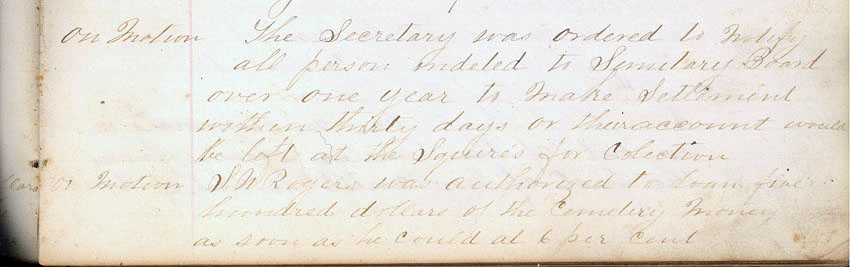 On Motion The Secretary was ordered to Notify
all person indeted to Semetary Board
over one year to Make Settlement
within thirty days or their account would
be left at the Squires for Colection
On Motion S W Rogers was authorized to loan five
hundred dollars of the Cemetery Money
as soon as he could at 6 per cent